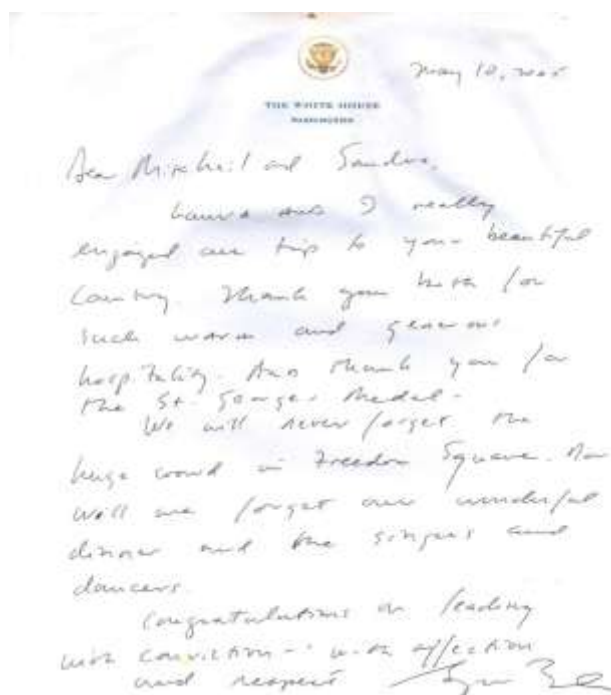 May 10, 2005
THE WHITE HOUSE
WASHINGTON
Dear Mikheil and Sandra,
Laura and I really
enjoyed our trip to your beautiful
Country. Thank you both for
such warm and generous
hospitality. And thank you for
the St. George's Medal.
We will never forget the
huge crowd in Freedom Square. Nor
will we forget our wonderful
dinner and the singers and
dancers.
Congratulations on leading
with conviction -- with affection
and respect